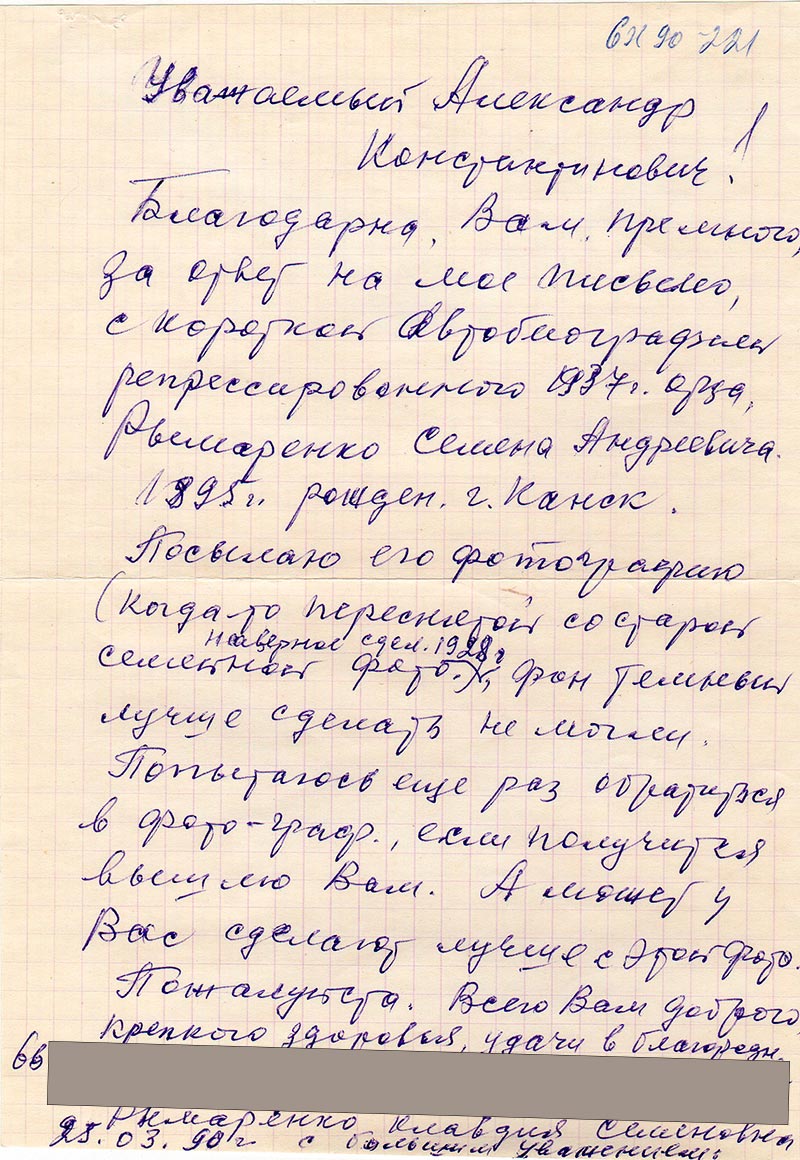 6Х 90-221
Уважаемый Александр
Константинович!
Благодарна, Вам, премного,
за ответ на мое письмо,
с короткой Автобиографией
репрессированного 1937г. отца,
Рымаренко Семена Андреевича.
1895г. рожден. г. Канск.
Посылаю его фотографию
(когда то переснятой со старой
наверное сдел. 1928г
семейной фото.), фон темный
лучше сделать не могли.
Попытаюсь еще раз обратиться
в фото-граф., если получится
вышлю Вам. А может у
Вас сделают лучше с этой фото.
Пожалуйста. Всего Вам доброго,
крепкого здоровья, удачи в благородн.
66
Рымаренко Клавдия Семеновна
25.03.90г с большим уважением.